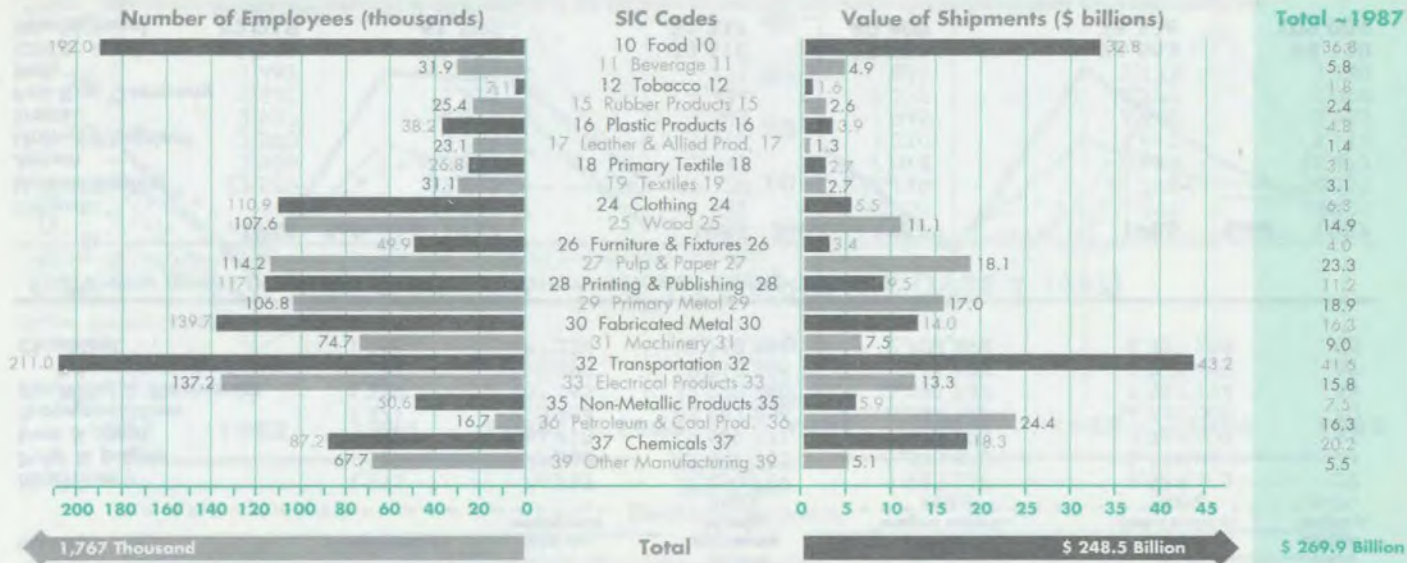 Number of Employees (thousands) SIC Codes Value of Shipments ($ billions) Total ~1987
192.0 10 Food 10 32.8 36.8
31.9 11 Beverage 11 4.9 5.8
12 Tobacco 12 1.6 1.8
25.4 15 Rubber Products 15 2.6 2.4
38.2 16 Plastic Products 16 3.9 4.8
23.1 17 Leather & Allied Prod. 17 1.3 1.4
26.8 18 Primary Textile 18 2.7 3.1
31.1 19 Textiles 19 2.7 3.1
110.9 24 Clothing 24 5.5 6.3
107.6 25 Wood 25 11.1 14.9
49.9 26 Furniture & Fixtures 26 3.4 4.0
114.2 27 Pulp & Paper 27 18.1 23.3
28 Printing & Publishing 28 9.5 11.2
106.8 29 Primary Metal 29 17.0 18.9
139.7 30 Fabricated Metal 30 14.0 16.3
74.7 31 Machinery 31 7.5 9.0
211.0 32 Transportation 32 43.2
137.2 33 Electrical Products 33 13.3 15.8
50.6 35 Non-Metallic Products 35 5.9 7.5
16.7 36 Petroleum & Coal Prod. 36 24.4 16.3
87.2 37 Chemicals 37 18.3 20.2
67.7 39 Other Manufacturing 39 5.1 5.5
200 180 160 140 120 100 80 60 40 20 0 0 5 10 15 20 25 30 35 40 45
1,767 Thousand Total $ 248.5 Billion $ 269.9 Billion